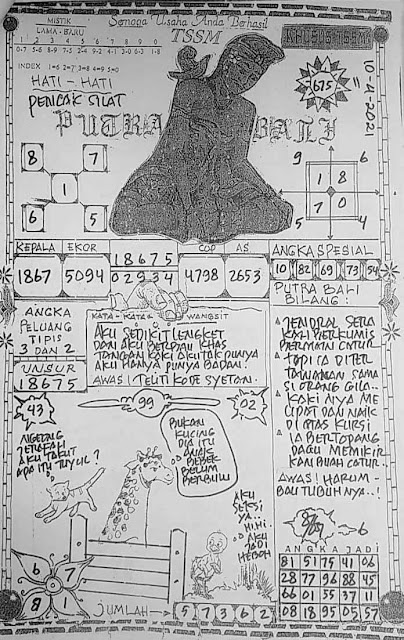 MISTIK
LAMA - BARU
Semoga Usaha Anda Berhasil
TSSM
KHUSUS TSSM
1 2 3 4 5 6 7 8 9 0
0-7 5-6 8-9 7-5 2-4 9-2 4-1 3-0 6-3 1-8
INDEX 1=6 2=7 3=8 4=9 5=0
HATI - HATI
PENCAK SILAT
PUTRA BALI
675
10-4-2021
8 7
1
6 5
9 6
1 8
7 0
5 4
KEPALA EKOR
1867 5094
18675
02934
COP AS
4798 2653
ANGKA SPESIAL
10 82 69 73 54
PUTRA BALI
BILANG :
ANGKA
PELUANG
TIPIS
3 DAN 2
UNSUR
18675
KATA - KATA WANGSIT
AKU SEDIKIT LENGKET
DAN AKU BERBAU KHAS
TANGAN KAKI AKU TAK PUNYA
AKU HANYA PUNYA BADAN.
AWAS ! TELITI KODE SYETAN.
JENDRAL SETA
KAKI BERKUMIS
BERMAIN CATUR
TOPI CA DITER
TAWAKAN SAMA
SI ORANG GILA..
KAKI NYA ME
LIPAT DAN NAIK
DI ATAS KURSI
IA BERTOPANG
DAGU MEMIKIR
KAN BUAH CATUR..
AWAS ! HARUM -
BAU TUBUHNYA..!
43
99
02
NGEONG
AKU TAKUT
APA ITU TUYUL ?
BUKAN
KUCING
DIA ITU
ANAK
BEBEK
BELUM
BERBULU
AKU
SEKSI
YA
HI.HI.
AKU
JADI
HEBOH
6 7
8 1
JUMLAH
5 7 3 6 2
- 6
ANGKA JADI
81 51 75 41 06
28 77 96 88 45
66 01 55 37 11
08 18 95 05 57